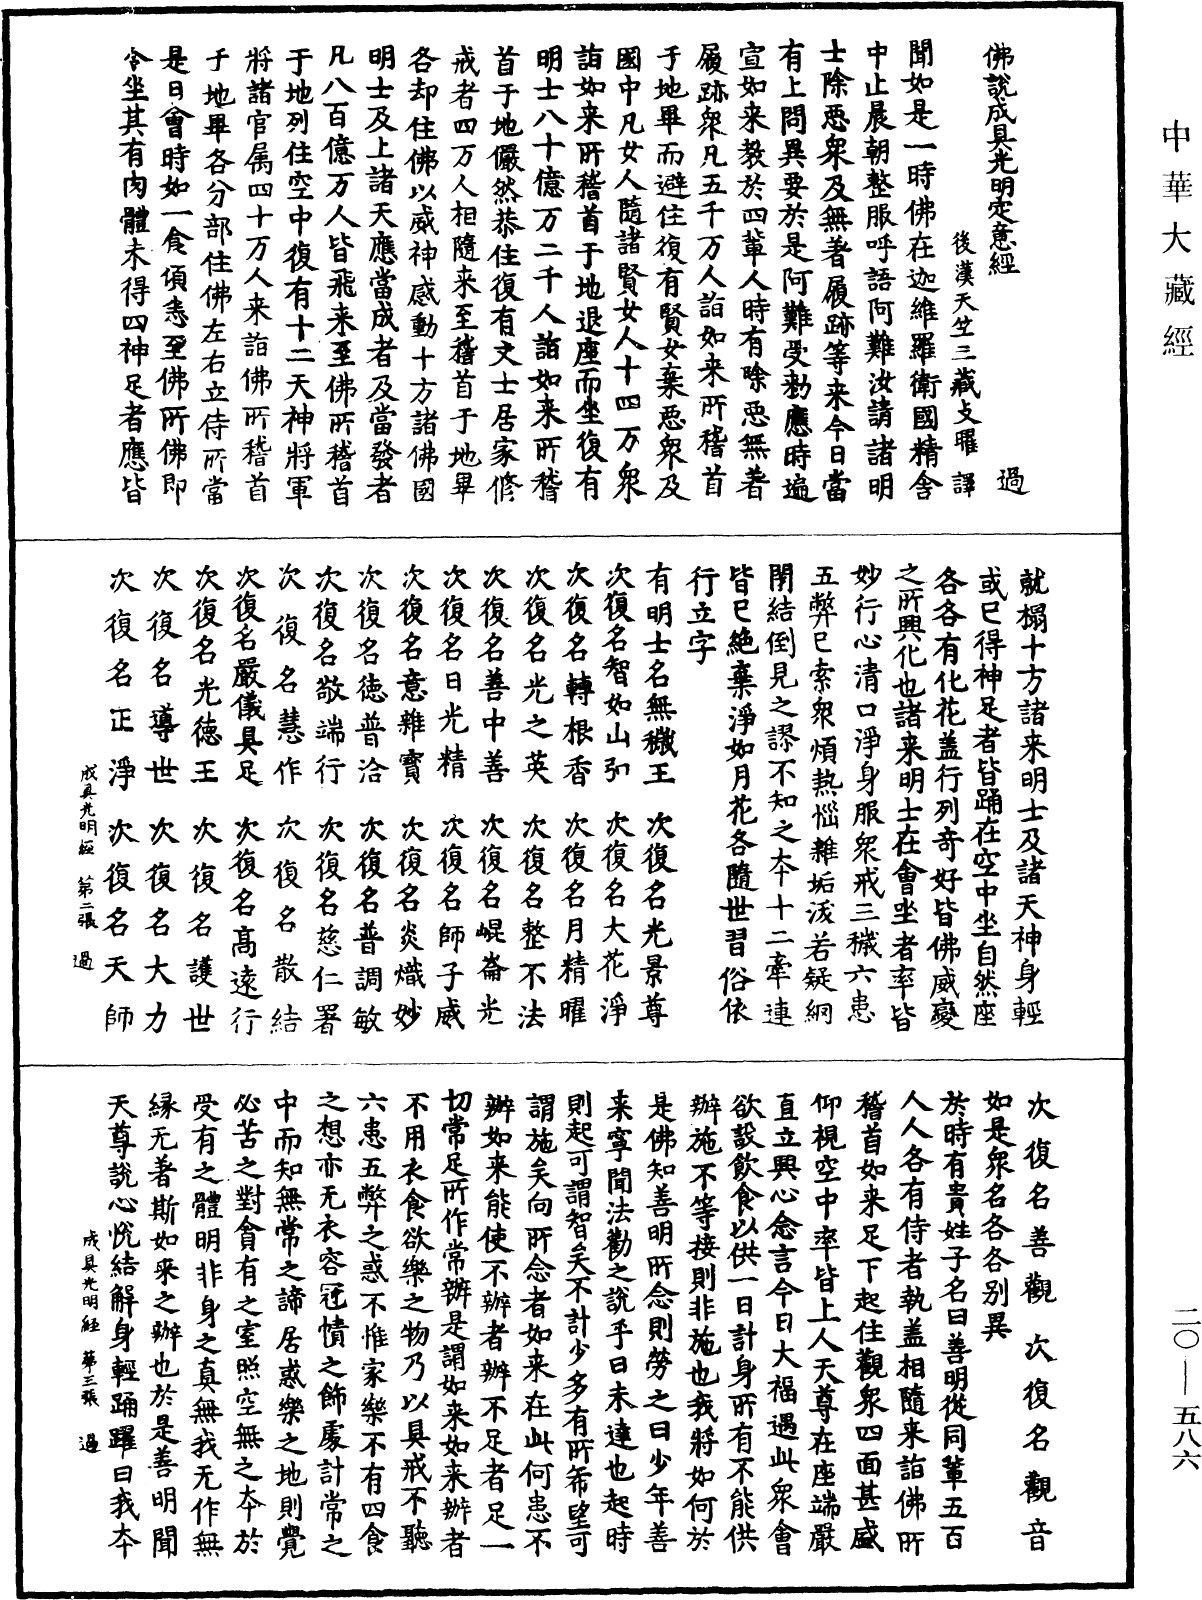 中華大藏經
佛說成具光明定意經
過
後漢天竺三藏支曜 譯
聞如是一時佛在迦維羅衛國精舍
中止晨朝整服呼語阿難汝請諸明
士除惡衆及無著履跡等来今日當
有上問異要於是阿難受勑應時遍
宣如来教於四輩人時有除惡無著
履跡衆凡五千万人詣如来所稽首
于地畢而避住復有賢女棄惡衆及
國中凡女人隨諸賢女人十四万衆
詣如来所稽首于地退座而坐復有
明士八十億万二千人詣如来所稽
首于地儼然恭住復有文士居家修
戒者四万人相隨来至稽首于地畢
各却住佛以威神感動十方諸佛國
明士及上諸天應當成者及當發者
凡八百億万人皆飛来至佛所稽首
于地列住空中復有十二天神將軍
將諸官属四十万人来詣佛所稽首
于地畢各分部住佛左右立侍所當
是日會時如一食頃悉至佛所佛即
令坐其有肉體未得四神足者應皆
就榻十方諸来明士及諸天神身輕
或已得神足者皆踊在空中坐自然座
各各有化花盖行列奇好皆佛威變
之所興化也諸来明士在會坐者率皆
妙行心清口淨身服衆戒三穢六患
五弊已索衆煩熱惱雜垢泼若疑網
閉結倒見之謬不知之夲十二牽連
皆已絶棄淨如月花各隨世習俗依
行立字
有明士名無穢王 次復名光景尊
次復名智如山弘 次復名大花淨
次復名轉根香 次復名月精曜
次復名光之英 次復名整不法
次復名善中善 次復名崐崙光
次復名日光精 次復名師子威
次復名意雜寳 次復名炎熾妙
次復名徳普洽 次復名普調敏
次復名敬端行 次復名慈仁署
次復名慧作 次復名散結
次復名嚴儀具足 次復名髙遠行
次復名光徳王 次復名護世
次復名導世 次復名大力
次復名正淨 次復名天師
成具光明經 第二張 過
次復名善觀 次復名觀音
如是衆名各各别異
於時有貴姓子名曰善明從同輩五百
人人各有侍者執盖相隨来詣佛所
稽首如来足下起住觀衆四面甚盛
仰視空中率皆上人天尊在座端嚴
直立興心念言今日大福遇此衆會
欲設飲食以供一日計身所有不能供
辦施不等接則非施也我將如何於
是佛知善明所念則勞之曰少年善
来寧聞法勸之說乎曰未達也起時
則起可謂智矣不計少多有所希望可
謂施矣向所念者如来在此何患不
辦如来能使不辦者辦不足者足一
切常足所作常辦是謂如来如来辦者
不用衣食欲樂之物乃以具戒不聽
六患五弊之惑不惟家樂不有四食
之想亦无衣容冠幘之飾處計常之
中而知無常之諦居惑樂之地則覺
必苦之對貪有之室照空無之夲於
受有之體明非身之真無我无作無
緣无著斯如来之辦也於是善明聞
天尊說心恱結解身輕踊躍曰我夲
成具光明經 第三張 過
二〇—五八六